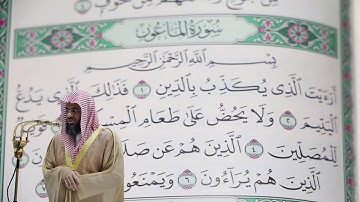 مِّنْ خَوْفٍ ٤
سُورَةُ الْمَاعُونِ
بِسْمِ اللَّهِ الرَّحْمَٰنِ الرَّحِيمِ
أَرَءَيْتَ الَّذِي يُكَذِّبُ بِالدِّينِ ١ فَذَٰلِكَ الَّذِي يَدُعُّ
الْيَتِيمَ ٢ وَلَا يَحُضُّ عَلَىٰ طَعَامِ
لِّلْمُصَلِّينَ ٤ الَّذِينَ هُمْ عَن
الَّذِينَ هُمْ يُرَاءُونَ ٦ وَيَمْنَعُونَ